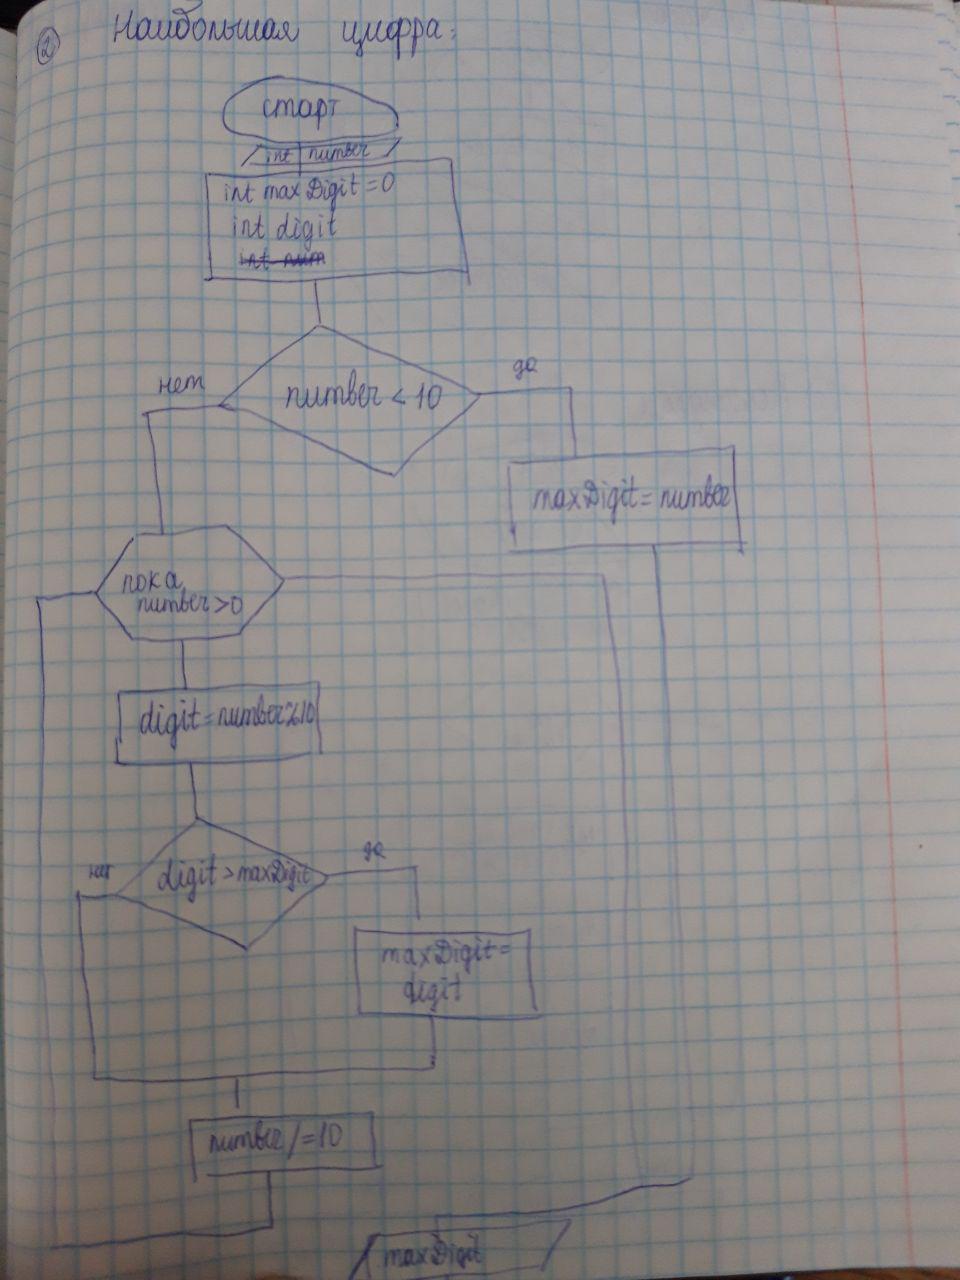 ② Наибольшая цифра:
старт
int number
int maxDigit = 0
int digit
int num
number < 10
нет
да
maxDigit = number
пока
number > 0
digit = number % 10
digit > maxDigit
нет
да
maxDigit =
digit
number /= 10
maxDigit